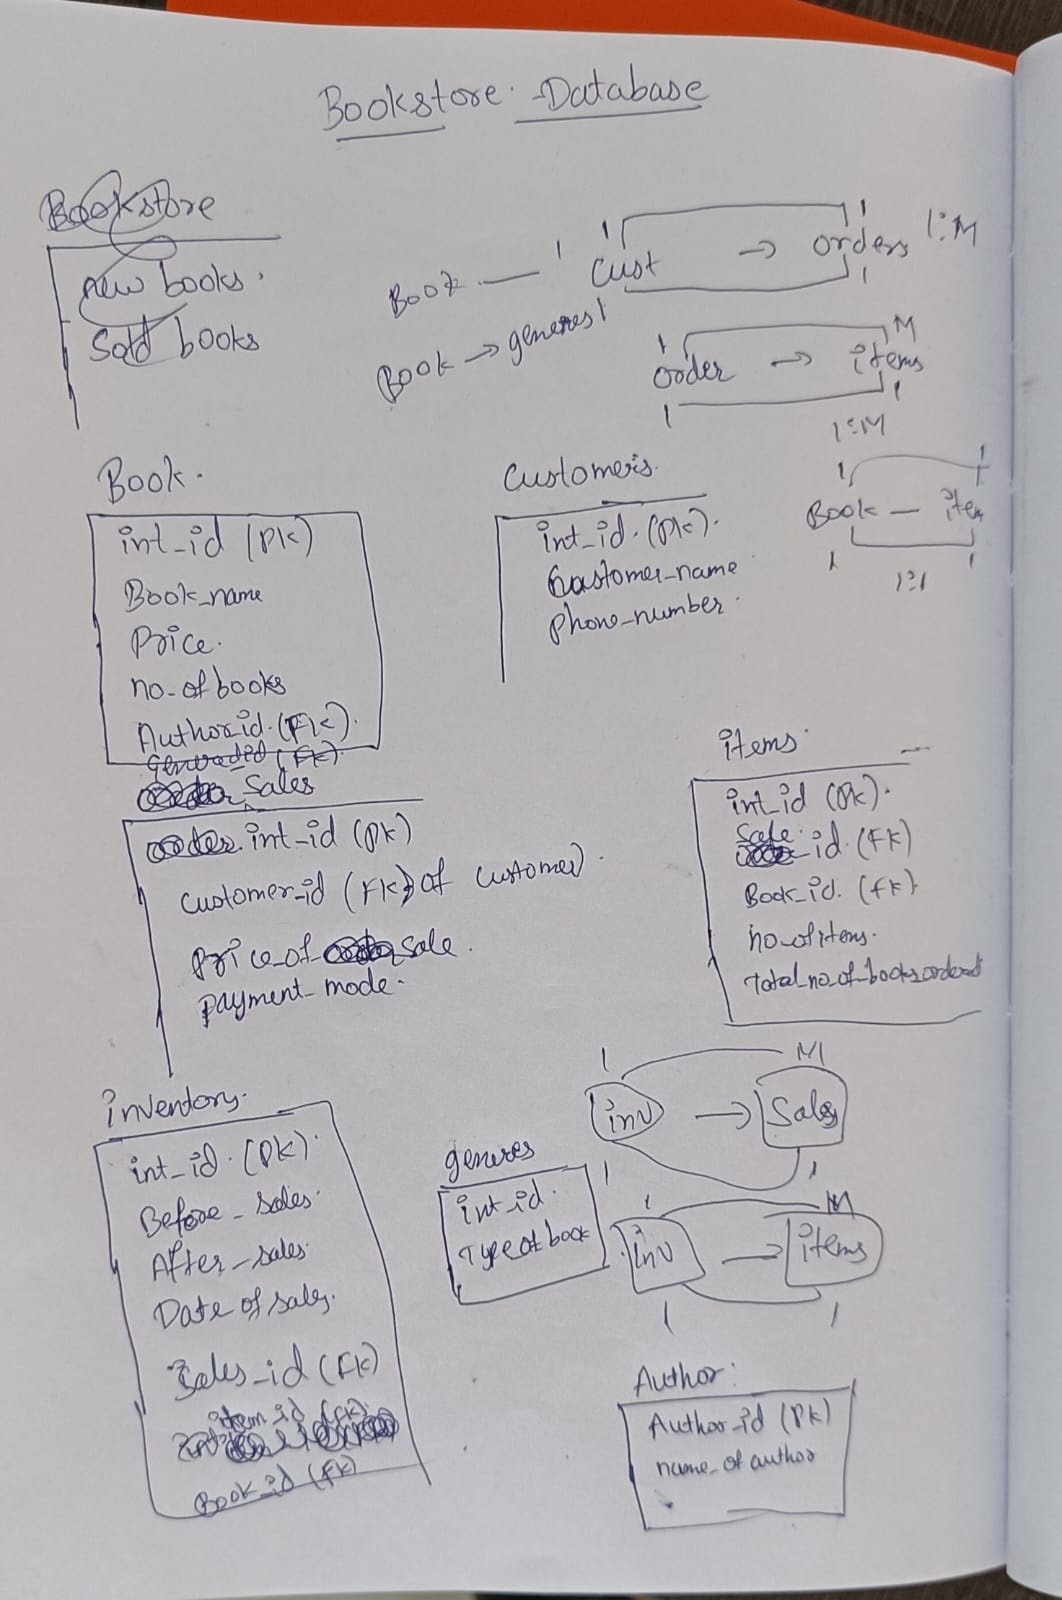 Bookstore - Database
Bookstore
new books.
Sold books
Book — 1 Cust → orders 1:M
1 1
1
Book → generes 1
order → items
1 M
1 1
1:M
Book — item
1 1
1 1
1:1
Book.
int_id (PK)
Book_name
Price.
no_of books
Author_id. (FK).
Genere_id (FK).
Customers.
int_id. (PK).
Customer_name
phone_number.
Sales
order int_id (PK)
customer_id (FK) of customer).
price_of sale.
payment_mode.
items.
int_id (PK).
Sale_id. (FK)
Book_id. (FK).
no_of items.
Total_no_of_books ordered
inventory.
int_id. (PK).
Before_sales.
After_sales.
Date of sales.
Sales_id (FK)
item_id (FK)
Book_id (FK)
generes
int_id.
Type of book
1 M
inv → Sales
1 1
1 M
inv → items
1 1
Author:
Author_id (PK)
name_of author